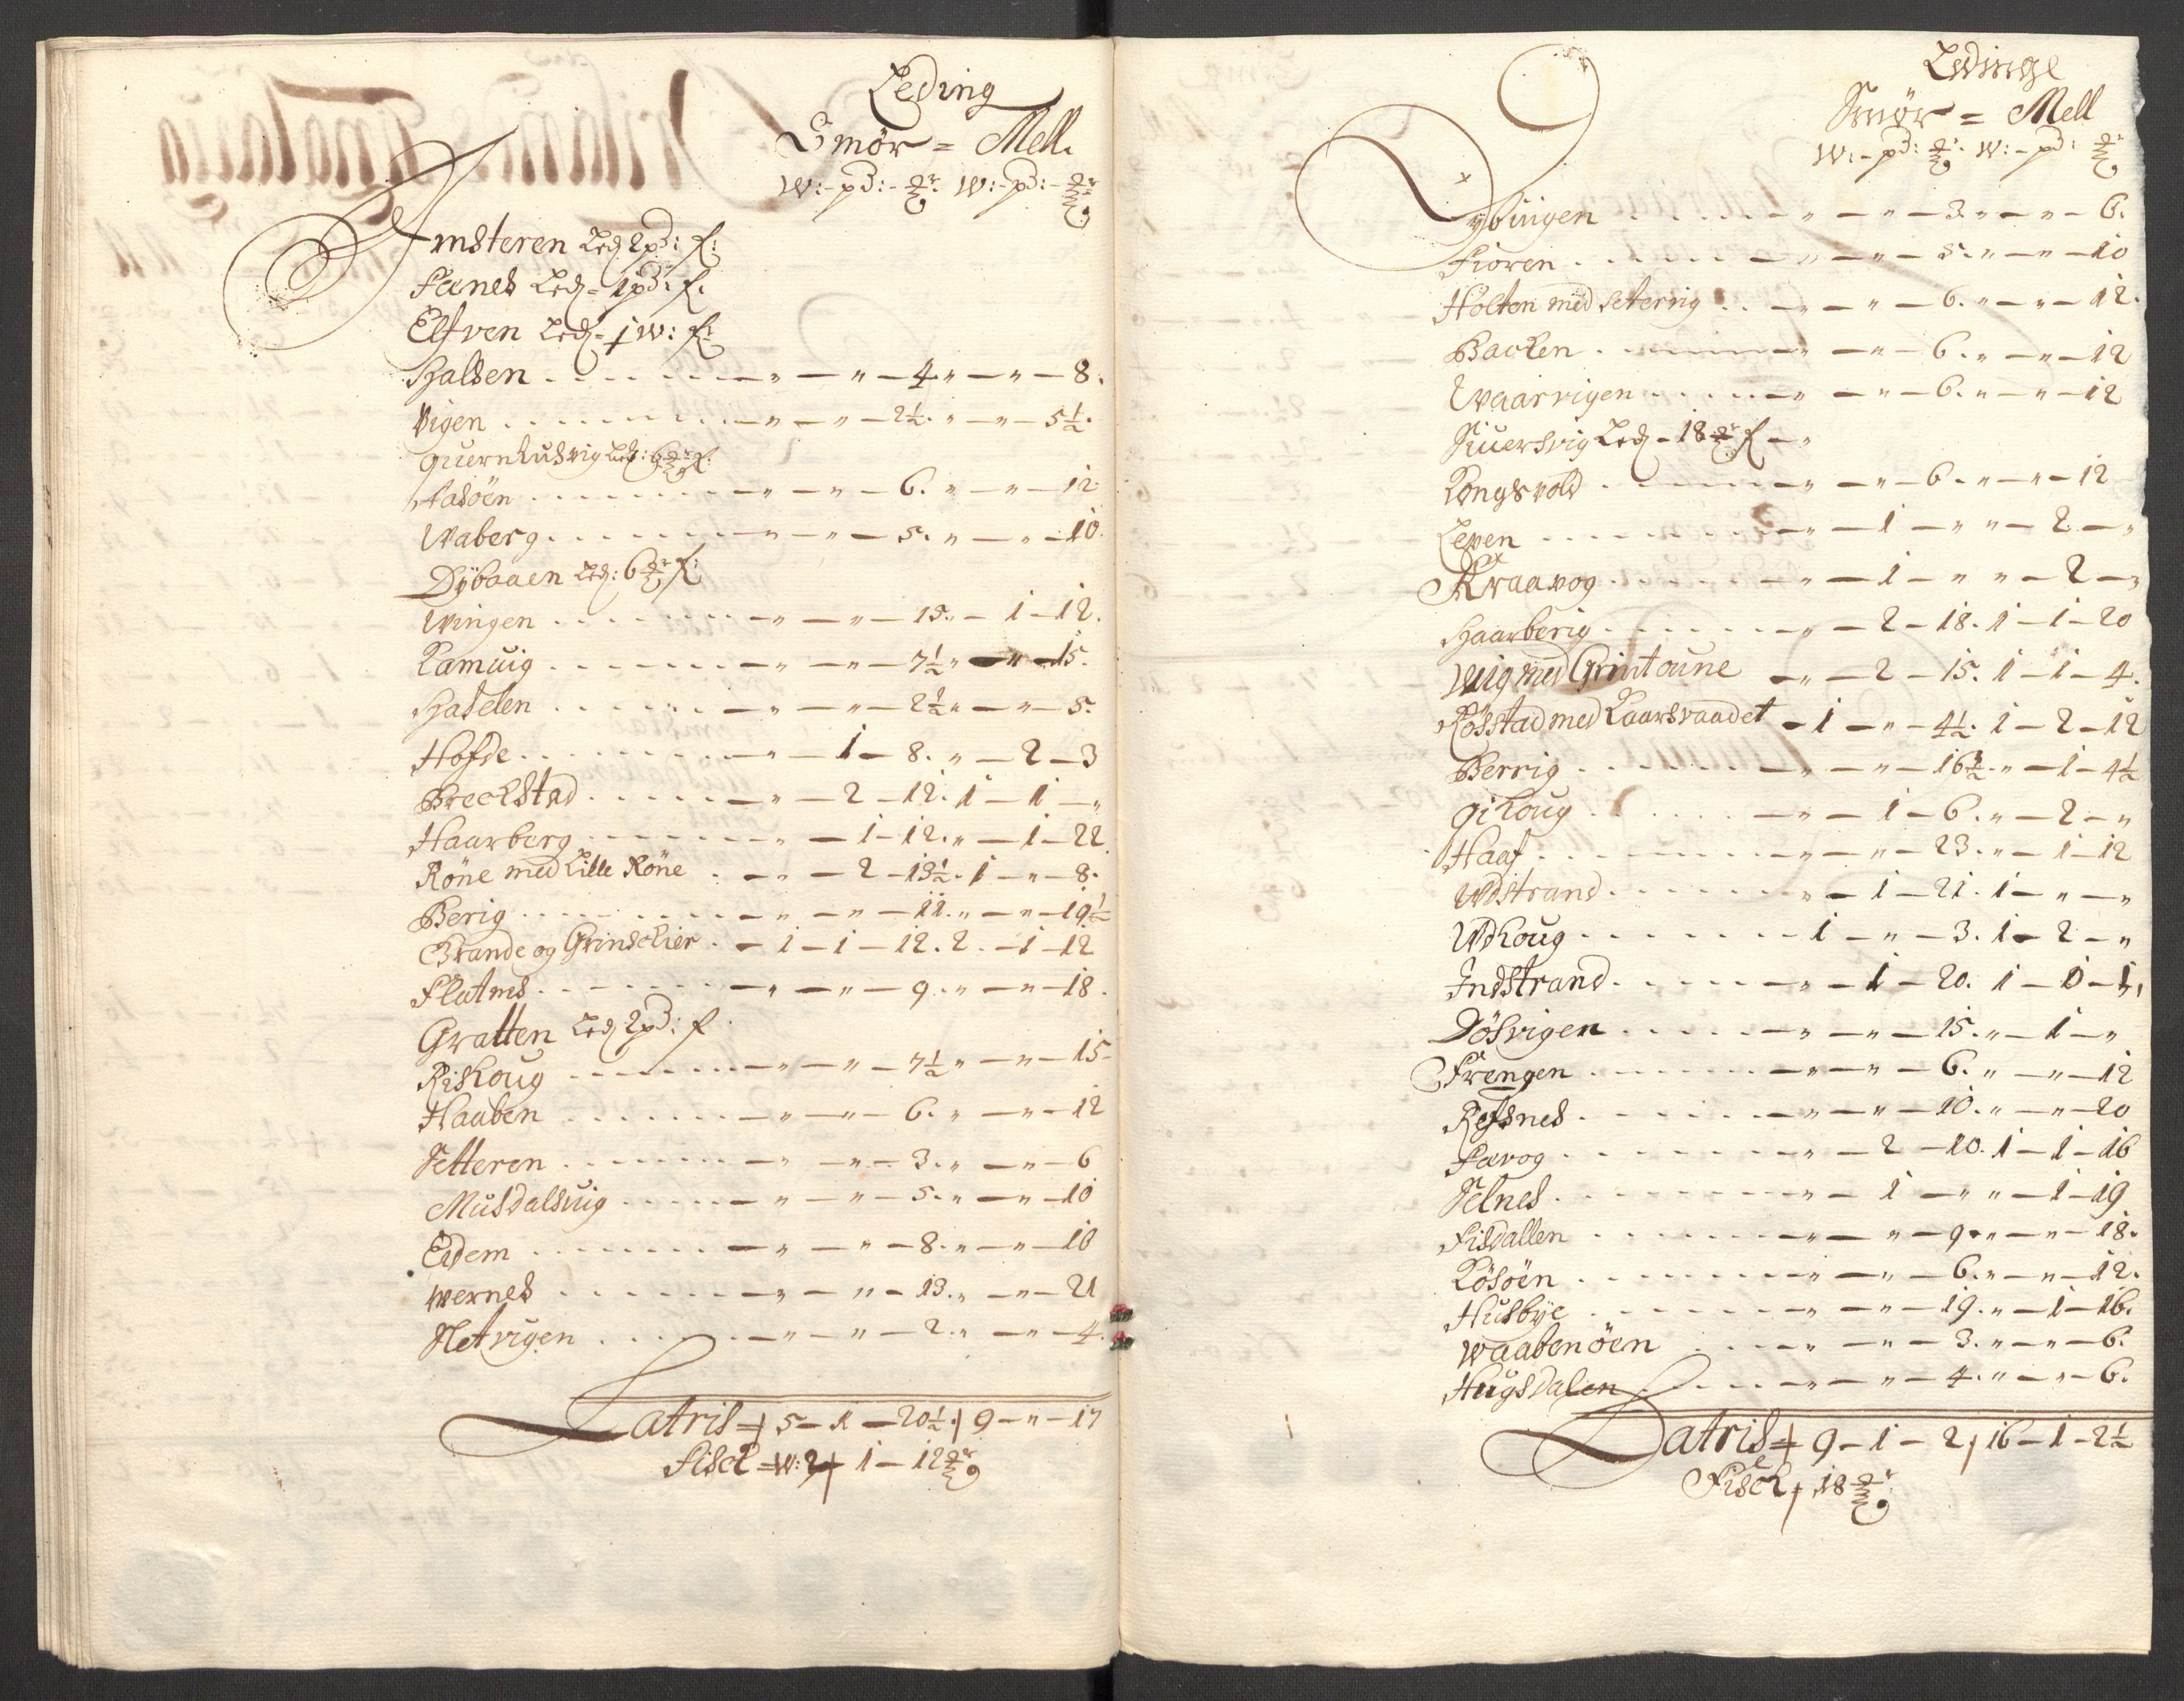 Leding
Smör = Mell.
W:- pd:- W:- pd:-
Amsteren Led 2 pd: f:
Fanes Led= 1 pd: f.
Elfven Led= 1 W: f:
Halsen . . . „ — „ — 4 „ — „ — 8.
Vigen . . . „ — „ — 2½. „ — „ — 5½.
Quernhusvig Led: 6 f:
Aasöen . . . „ — „ — 6. „ — „ — 12
Waberg . . . „ — „ — 5. „ — „ — 10.
Dÿbaaen Led: 6 f:
Wingen . . . „ — „ — 15. „ — 1 — 12.
Kamuig . . . „ — „ — 7½ „ — „ — 15.
Haselen . . . „ — „ — 2½ „ — „ — 5.
Hofde . . . „ — 1 — 8. „ — 2 — 3
Breckstad . . . „ — 2 — 12. 1 — 1 — „
Haarberg . . . — 1 — 12. „ — 1 — 22.
Röne med Lille Röne . „ — 2 — 13½. 1 — „ — 8.
Berig . . . „ — „ — 11. „ — „ — 19½
Grande og Grinschier . — 1 — 1 — 12. 2. — 1 — 12
Flatnes . . . „ — „ — 9. „ — „ — 18.
Gratten Led 2 pd: f.
Rishoug . . . „ — „ — 7½ „ — „ — 15
Haaben . . . „ — „ — 6. „ — „ — 12
Setteren . . . „ — „ — 3. „ — „ — 6
Musdalsvig . . . „ — „ — 5. „ — „ — 10
Eidem . . . „ — „ — 8. „ — „ — 16
Wernes . . . „ — „ — 13. „ — „ — 21
Sletvigen . . . „ — „ — 2. „ — „ — 4.
Latris = 5 — 1 — 20½. 9 — „ — 17
Fisch = W: 2 1 — 12
Ledinge
Smör = Mell
W:- pd: W:- pd:
Dybvigen . . . „ — „ — 3. „ — „ — 6.
Fioren . . . „ — „ — 5. „ — „ — 10
Holten med Seterrig . . „ — „ — 6. „ — „ — 12.
Backen . . . „ — „ — 6. „ — „ — 12
Waarvigen . . . „ — „ — 6. „ — „ — 12
Siuersvig Led - 18 f — „
Kongsvold . . . „ — „ — 6. „ — „ — 12
Leven . . . „ — 1 — „ „ — 2 — „
Kraavog . . . „ — 1 — „ „ — 2 — „
Haarberig . . . „ — 2 — 18. 1 — 1 — 20
Wiig med Grintoune „ — 2 — 15. 1 — 1 — 4.
Rösstad med Kaarsvaadet — 1 — „ — 4½. 1 — 2 — 12
Berrig . . . „ — „ — 16½. „ — 1 — 4½
Oihoug . . . „ — 1 — 6. „ — 2 — „
Haaf . . . „ — „ — 23. „ — 1 — 12
Wdstrand . . . „ — 1 — 21. 1 — „ — „
Wdhoug . . . 1 — „ — 3. 1 — 2 — „
Indstrand . . . „ — 1 — 20. 1 —
Dösvigen . . . „ — „ — 15. „ — 1 — „
Frengen . . . „ — „ — 6. „ — „ — 12
Refsnes . . . „ — „ — 10. „ — „ — 20
Farog . . . „ — 2 — 10. 1 — 1 — 16
Selnes . . . „ — 1 — „ „ — 1 — 19
Fisdallen . . . „ — „ — 9 „ — „ — 18.
Kösöen . . . „ — „ — 6. „ — „ — 12.
Husbÿe . . . „ — „ — 19. „ — 1 — 16.
Waabenöen . . . „ — „ — 3. „ — „ — 6.
Hugsdalen . . . „ — „ — 4. „ — „ — 6.
Latris = 9 — 1 — 2 16 — 1 — 2½
Fisch 18